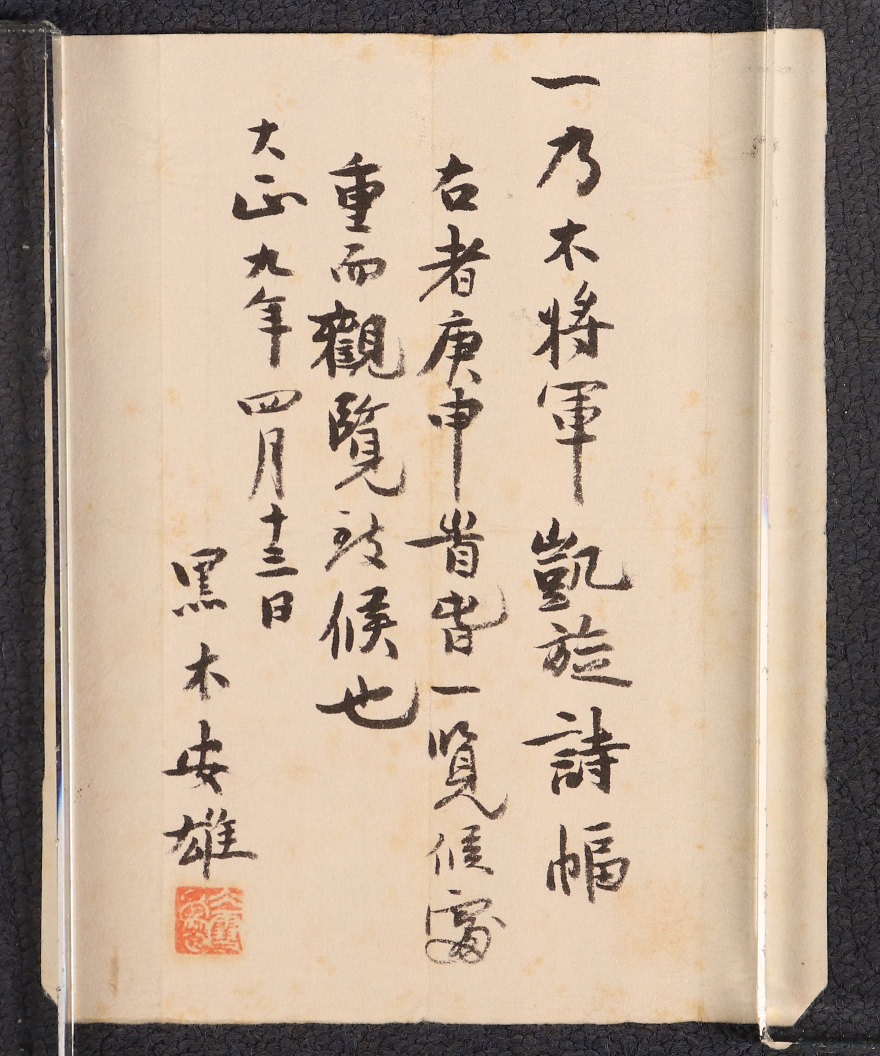 一乃木将軍凱旋詩幅
右者庚申首春一覧候處
重而觀覧致候也
大正九年四月十三日
黒木安雄